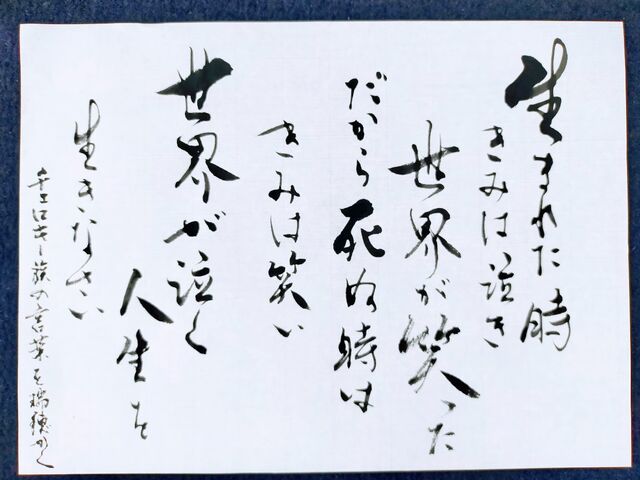 生まれた時
きみは泣き
世界が笑った
だから死ぬ時は
きみは笑い
世界が泣く
人生を
生きなさい
チェロキー族の言葉を瑞穂かく